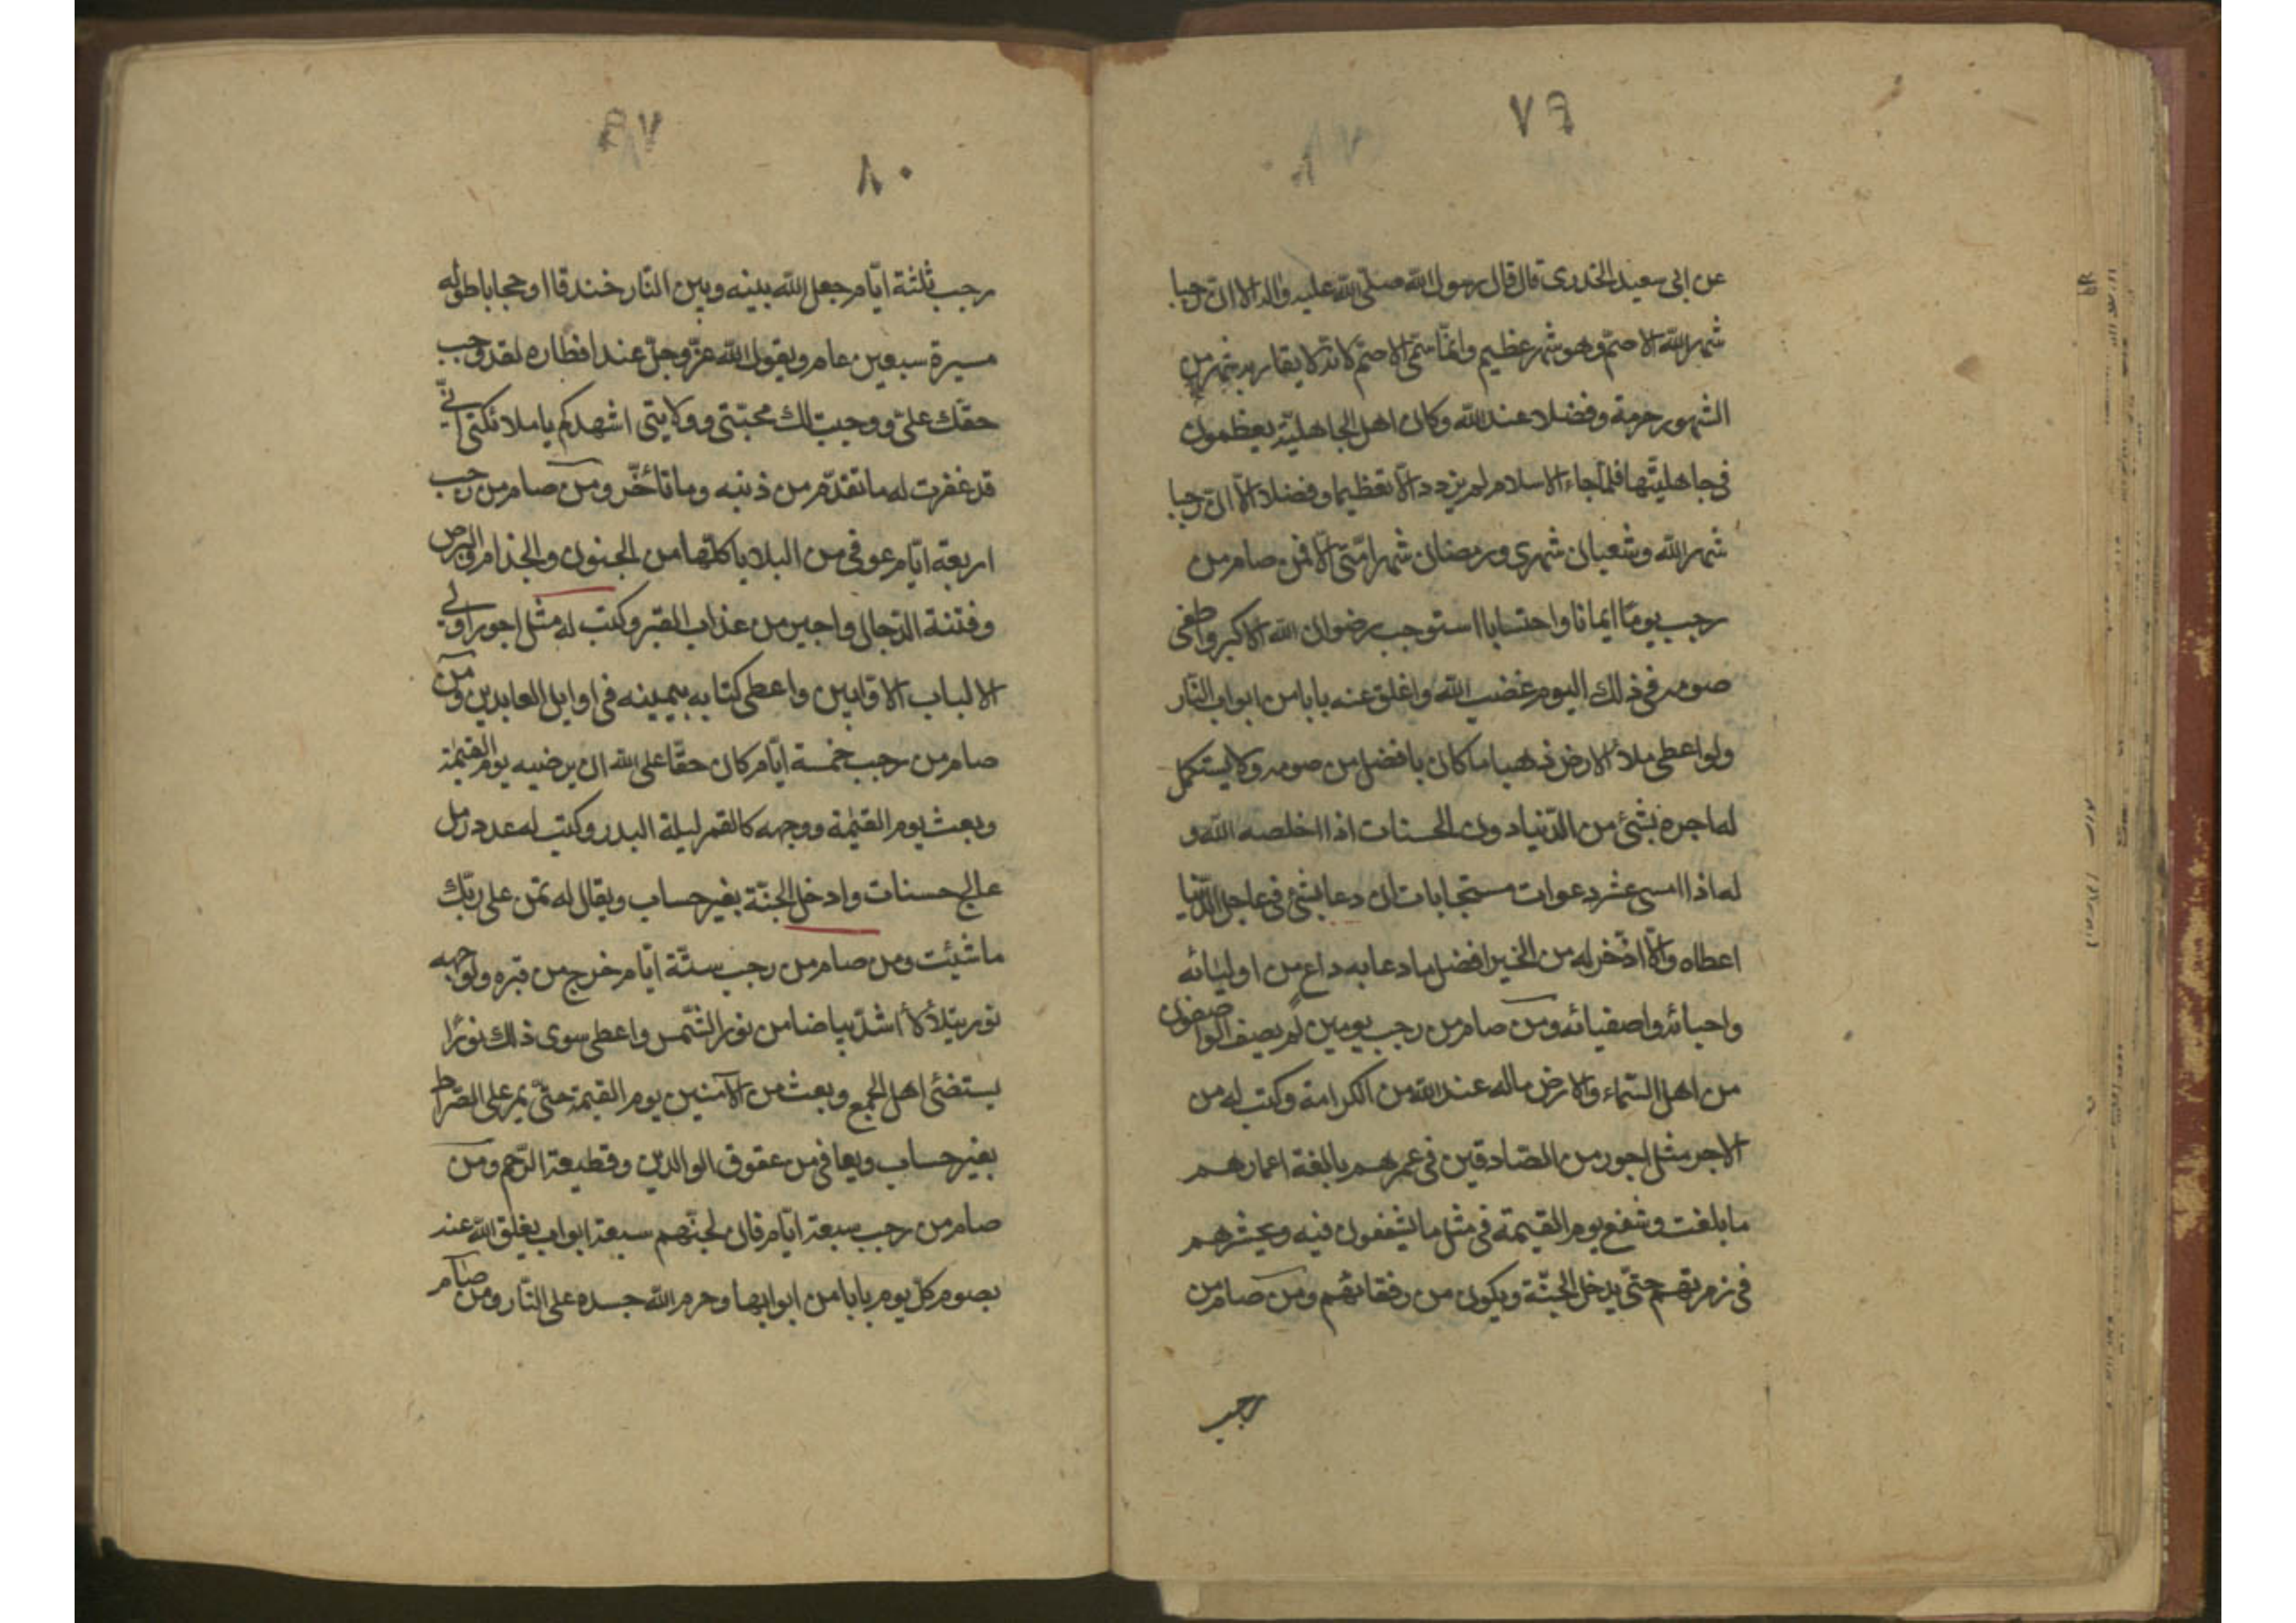 ٧٩
عن ابى سعيد الخدرى قال قال رسول الله صلّى الله عليه واله الا ان رجبا
شهر الله الاصمّ وهو شهر عظيم وانّما سمّى الاصمّ لانّه لا يقاربه شهر من
الشهور حرمة وفضلا عند الله وكان اهل الجاهليّة يعظمون
فى جاهليّتها فلمّا جاء الاسلام لم يزدد الّا تعظيما وفضلا الا ان رجبا
شهر الله وشعبان شهرى ورمضان شهر امّتى الا فمن صام من
رجب يومًا ايمانا واحتسابا استوجب رضوان الله الاكبر واطفى
صومه فى ذلك اليوم غضب الله واغلق عنه بابا من ابواب النّار
ولو اعطى ملأ الارض ذهبا ما كان بافضل من صومه ولا يستكمل
له اجره بشئ من الدّنيا دون الحسنات اذا اخلصه الله و
له اذا امسى عشر دعوات مستجابات ان دعا بشئ فى عاجل الدّنيا
اعطاه والّا ادّخر له من الخير افضل ما دعا به داعٍ من اوليائه
واحبائه واصفيائه ومن صام من رجب يومين لم يصف الواصفون
من اهل السّماء والارض ماله عند الله من الكرامة وكتب له من
الاجر مثل اجور من الصّادقين فى عمرهم بالغة اعمارهم
ما بلغت وشفع يوم القيمة فى مثل ما يشفعون فيه ويحشرهم
فى زمرتهم حتّى يدخل الجنّة ويكون من رفقائهم ومن صام من
رجب
٨٠
رجب ثلثة ايّام جعل الله بينه وبين النّار خندقا او حجابا طوله
مسيرة سبعين عام ويقول الله عزّ وجلّ عند افطاره لقد وجب
حقّك علىّ ووجبت لك محبّتى وولايتى اشهدكم يا ملائكتى انّى
قد غفرت له ما تقدّم من ذنبه وما تأخّر ومن صام من رجب
اربعة ايّام عوفى من البلايا كلّها من الجنون والجذام والبرص
وفتنة الدّجال واجير من عذاب القبر وكتب له مثل اجور اولى
الالباب الاوّابين واعطى كتابه بيمينه فى اوايل العابدين ومن
صام من رجب خمسة ايّام كان حقّا على الله ان يرضيه يوم القيمة
وبعث يوم القيمة ووجهه كالقمر ليلة البدر وكتب له عدد رمل
عالج حسنات وادخل الجنّة بغير حساب ويقال له تمنّ على ربّك
ما شئت ومن صام من رجب ستّة ايّام خرج من قبره ولوجهه
نور يتلألأ اشدّ بياضا من نور الشّمس واعطى سوى ذلك نورًا
يستضئ اهل الجمع وبعث من الآمنين يوم القيمة حتّى يمر على الصّراط
بغير حساب ويعافى من عقوق الوالدين وقطيعة الرّحم ومن
صام من رجب سبعة ايّام فان لجهنّم سبعة ابواب يغلق الله عنه
بصوم كلّ يوم بابا من ابوابها وحرم الله جسده على النّار ومن صام